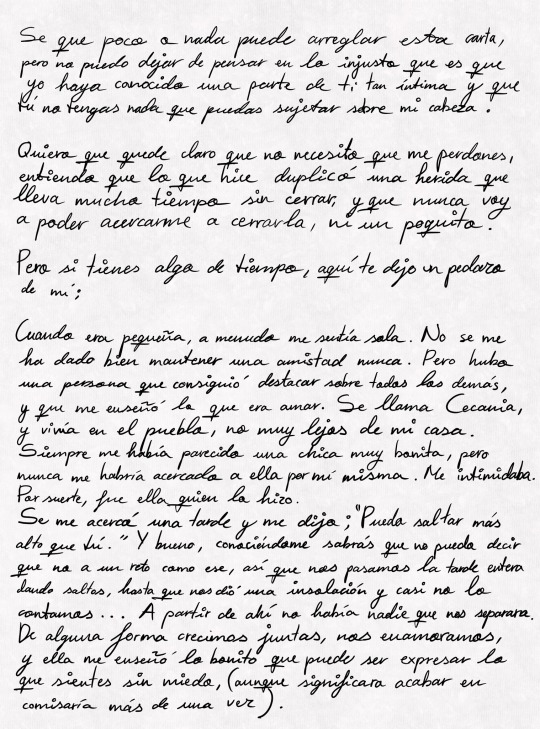 Se que poco o nada puede arreglar esta carta,
pero no puedo dejar de pensar en lo injusto que es que
yo haya conocido una parte de ti tan íntima y que
tú no tengas nada que puedas sujetar sobre mi cabeza.
Quiero que quede claro que no necesito que me perdones,
entiendo que lo que hice duplicó una herida que
lleva mucho tiempo sin cerrar, y que nunca voy
a poder acercarme a cerrarla, ni un poquito.
Pero si tienes algo de tiempo, aquí te dejo un pedazo
de mí;
Cuando era pequeña, a menudo me sentía sola. No se me
ha dado bien mantener una amistad nunca. Pero hubo
una persona que consiguió destacar sobre todas las demás,
y que me enseñó lo que era amar. Se llama Cecania,
y vivía en el pueblo, no muy lejos de mi casa.
Siempre me había parecido una chica muy bonita, pero
nunca me habría acercado a ella por mí misma. Me intimidaba.
Por suerte, fue ella quien lo hizo.
Se me acercó una tarde y me dijo; "Puedo saltar más
alto que tú." Y bueno, conociéndome sabrás que no puedo decir
que no a un reto como ese, así que nos pasamos la tarde entera
dando saltos, hasta que nos dió una insolación y casi no lo
contamos... A partir de ahí no había nadie que nos separara.
De alguna forma crecimos juntas, nos enamoramos,
y ella me enseñó lo bonito que puede ser expresar lo
que sientes sin miedo, (aunque significara acabar en
comisaría más de una vez).